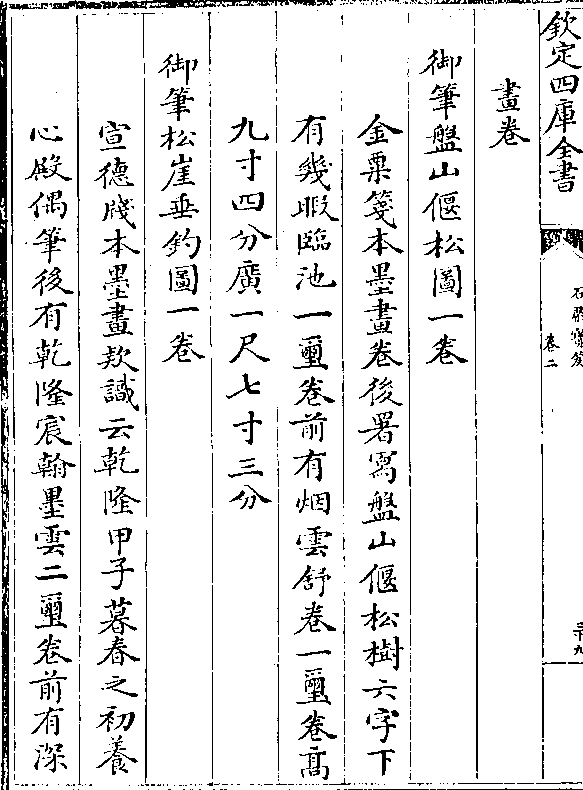 欽定四庫全書
石渠寶笈
卷二
三十九
畫卷
御筆盤山偃松圖一卷
金粟箋本墨畫卷後署寫盤山偃松樹六字下
有幾暇臨池一璽卷前有烟雲舒卷一璽卷高
九寸四分廣一尺七寸三分
御筆松崖垂釣圖一卷
宣德牋本墨畫欵識云乾隆甲子暮春之初養
心殿偶筆後有乾隆宸翰墨雲二璽卷前有深